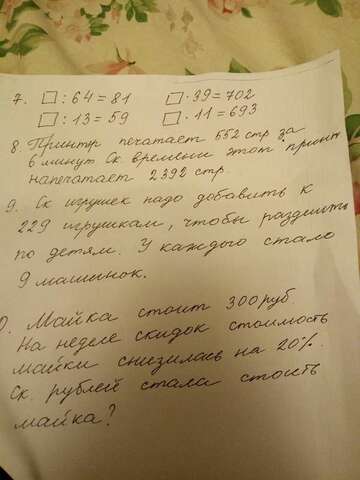 7. □ : 64 = 81 □ · 39 = 702
□ : 13 = 59 □ · 11 = 693
8. Принтер печатает 552 стр за
6 минут Ск времени этот принт
напечатает 2392 стр.
9. Ск игрушек надо добавить к
229 игрушкам, чтобы разделить
по детям. У каждого стало
9 машинок.
0. Майка стоит 300 руб
На неделе скидок стоимость
майки снизилась на 20%.
Ск. рублей стала стоить
майка?